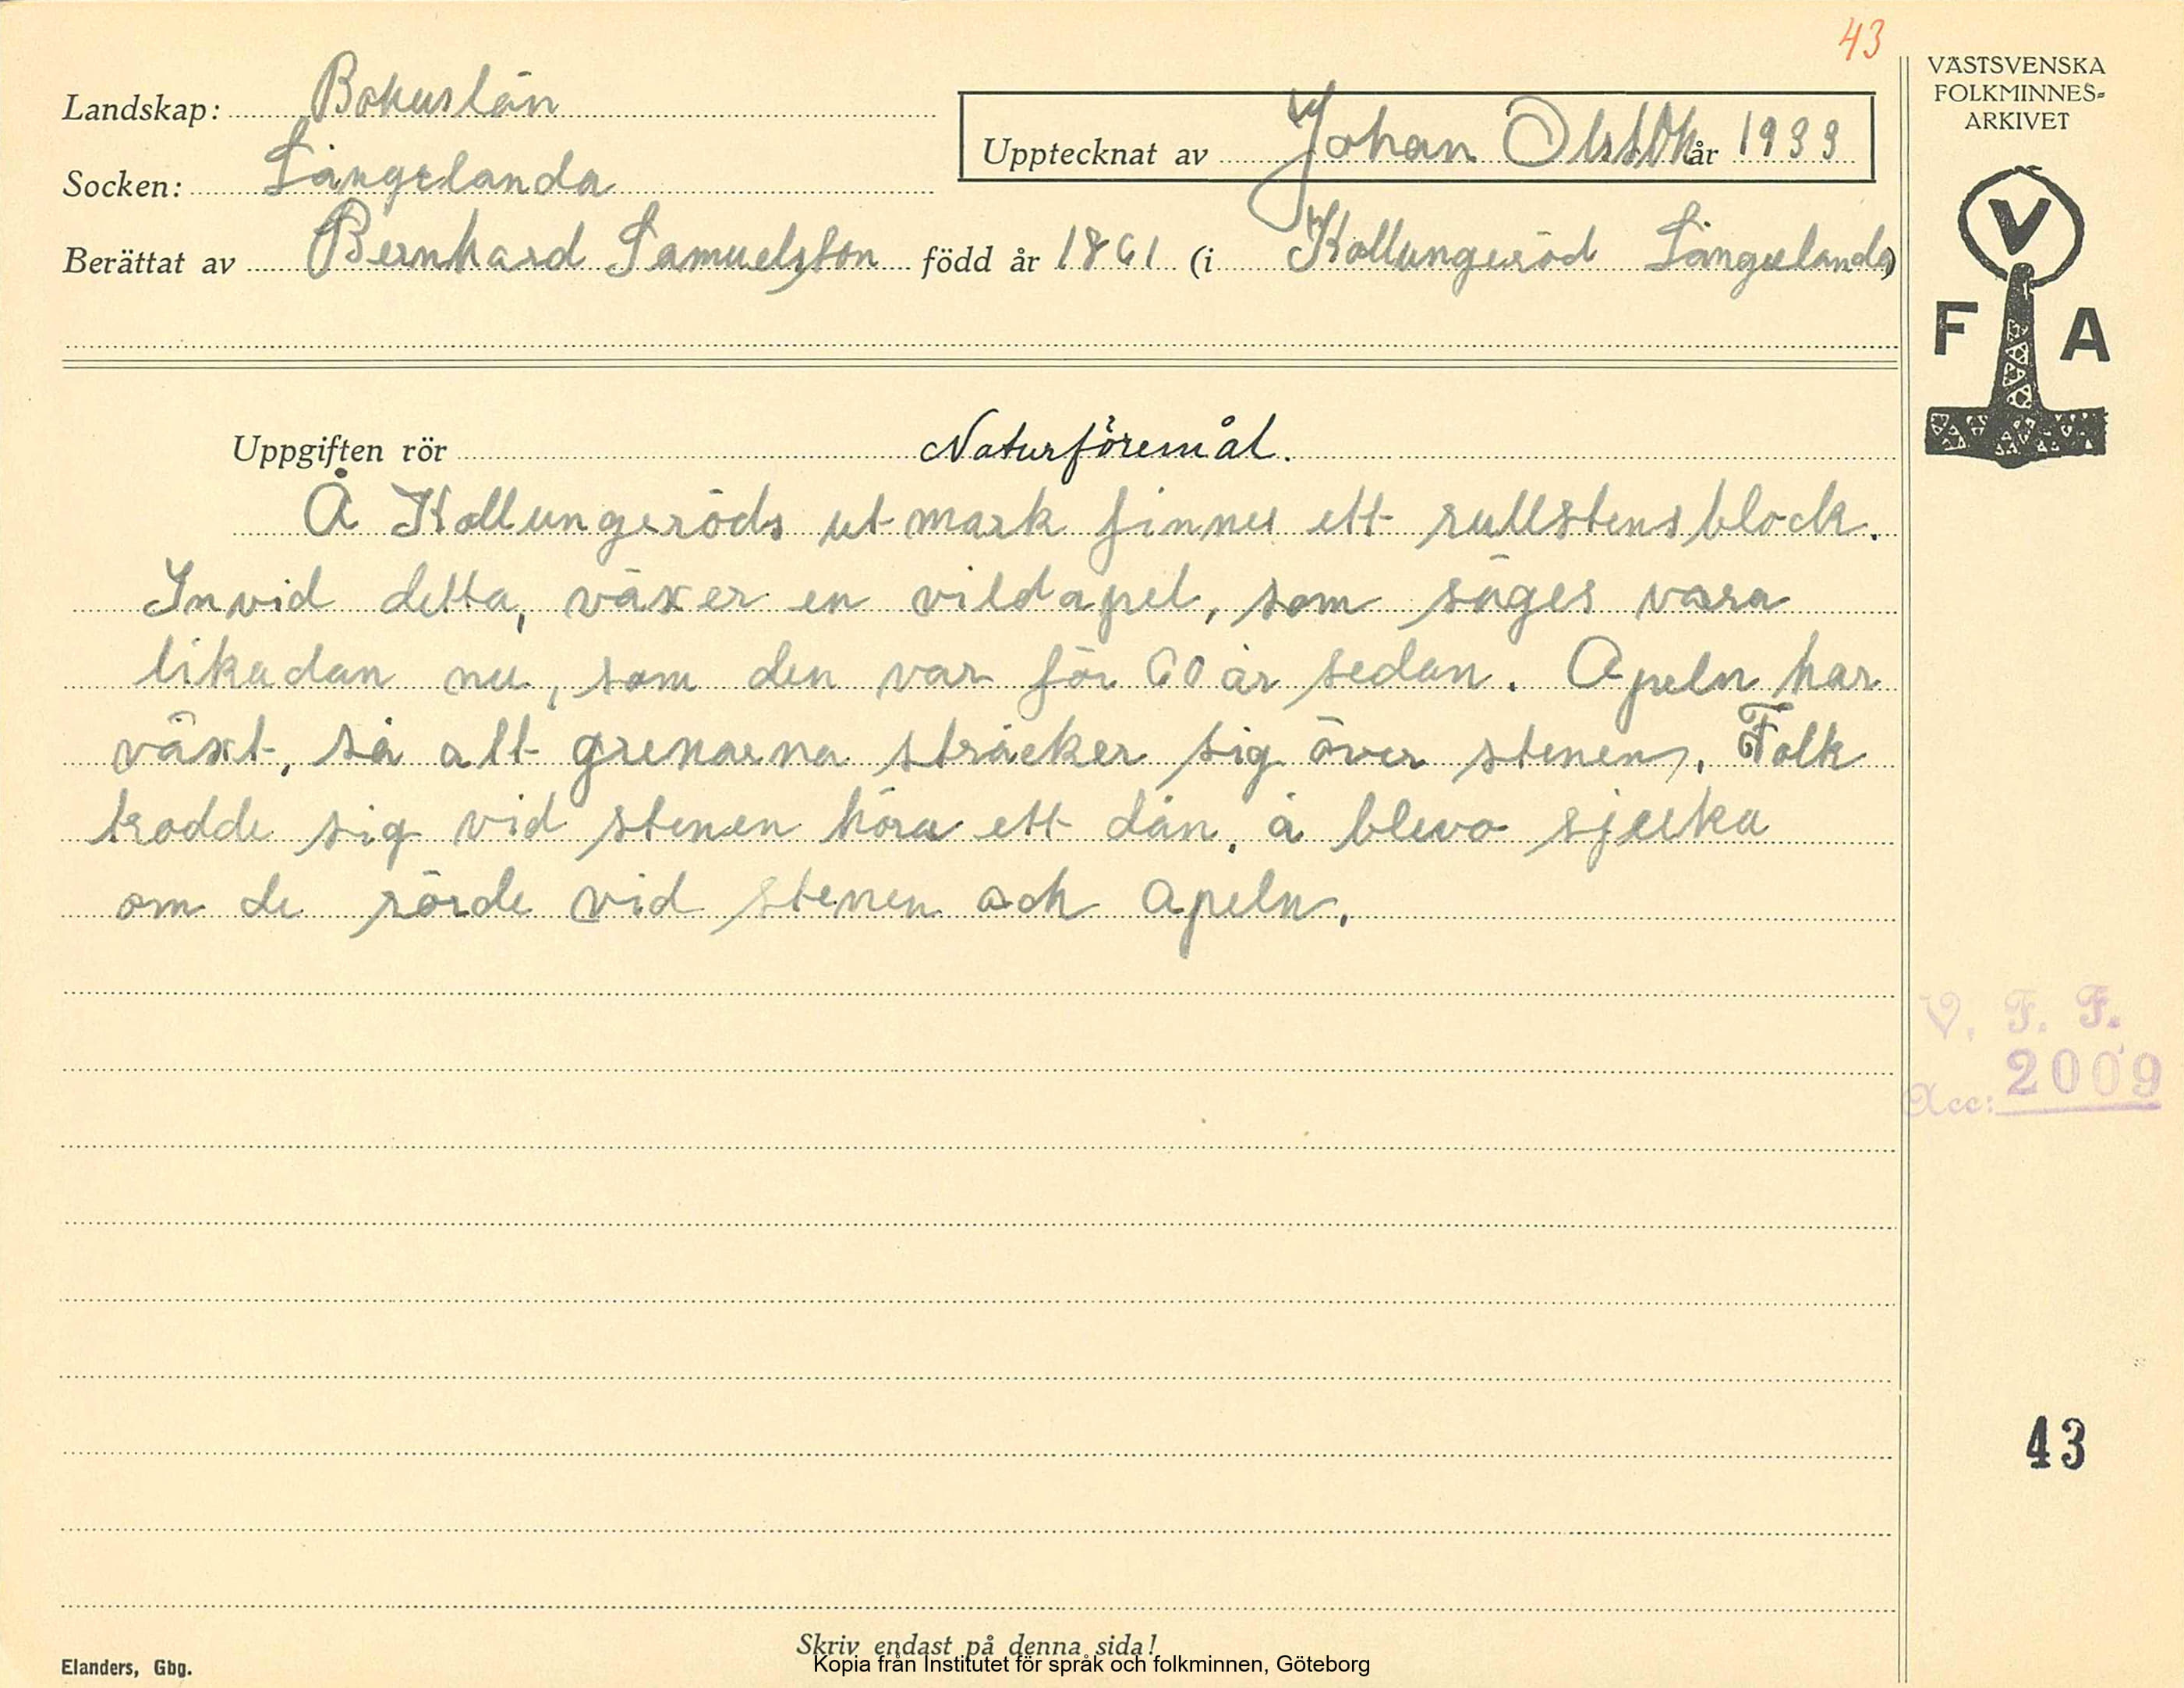 43
VÄSTSVENSKA
FOLKMINNES=
ARKIVET
Landskap: Bohuslän
Upptecknat av Johan Olsson år 1933
Socken: Långelanda
Berättat av Bernhard Samuelsson född år 1861 (i Kollungeröd Långelanda)
V
F A
Uppgiften rör Naturföremål.
Å Kollungeröds utmark finnes ett rullstensblock.
Invid detta, växer en vildapel, som säges vara
likadan nu, som den var för 60 år sedan. Apeln har
växt, så att grenarna sträcker sig över stenen. Folk
trodde sig vid stenen höra ett dån, å blevo sjuka
om de rörde vid stenen och apeln.
V. F. F.
Acc: 2009
43
Skriv endast på denna sida!
Kopia från Institutet för språk och folkminnen, Göteborg
Elanders, Gbg.